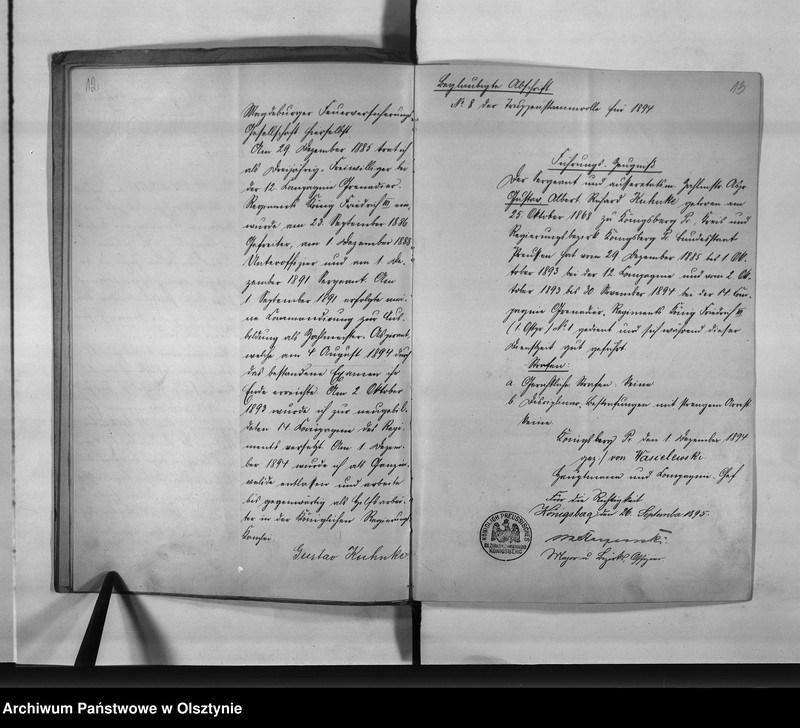 12
Magdeburger Feuerversicherungs-
Gesellschaft hierselbst
Am 29. Dezember 1885 trat ich
als Dreijährig-Freiwilliger bei
der 12. Compagnie Grenadier-
Regiments König Friedrich III ein,
wurde am 23. September 1886
Gefreiter, am 1 Dezember 1888
Unteroffizier und am 1 De-
zember 1891 Sergeant. Am
1 September 1891 erfolgte mei-
ne Kommandirung zur Aus-
bildung als Zahlmeister-Aspirant,
welche am 4 August 1894 durch
das bestandene Examen ihr
Ende erreichte. Am 2 Oktober
1893 wurde ich zur neugebil-
deten 14 Compagnie des Regi-
ments versetzt. Am 1 Dezem-
ber 1894 wurde ich als Ganzin-
valide entlassen und arbeite
bis gegenwärtig als Hilfsarbei-
ter in der Königlichen Regierungs
Kanzlei.
Gustav Kuhnke
13
Beglaubigte Abschrift
No 8 der Truppenstammrolle für 1894
Führungs-Zeugniß
Der Sergeant und außeretatsm. Zahlmstr. Aspr
Gustav Albert Richard Kuhnke geboren am
25 Oktober 1868 zu Königsberg Pr. Kreis und
Regierungsbezirk Königsberg Pr. Bundesstaat
Preußen hat vom 29. Dezember 1885 bis 1 Ok-
tober 1893 bei der 12 Compagnie und vom 2 Ok-
tober 1893 bis 30 November 1894 bei der 14 Com-
pagnie Grenadier-Regiments König Friedrich III
(1. Ostpr.) No 1 gedient und sich während dieser
Dienstzeit gut geführt.
Strafen:
a. Gerichtliche Strafen: Keine
b. Disciplinar-Bestrafungen mit strengem Arrest:
Keine
Königsberg Pr. den 1 Dezember 1894
gez:/ von Wasielewski
Hauptmann und Compagnie-Chef
Für die Richtigkeit
Königsberg den 26. September 1895.
Major u. Bezirks-Offizier
KÖNIGLICH PREUSSISCHES
BEZIRKSKOMMANDO
KÖNIGSBERG
Archiwum Państwowe w Olsztynie